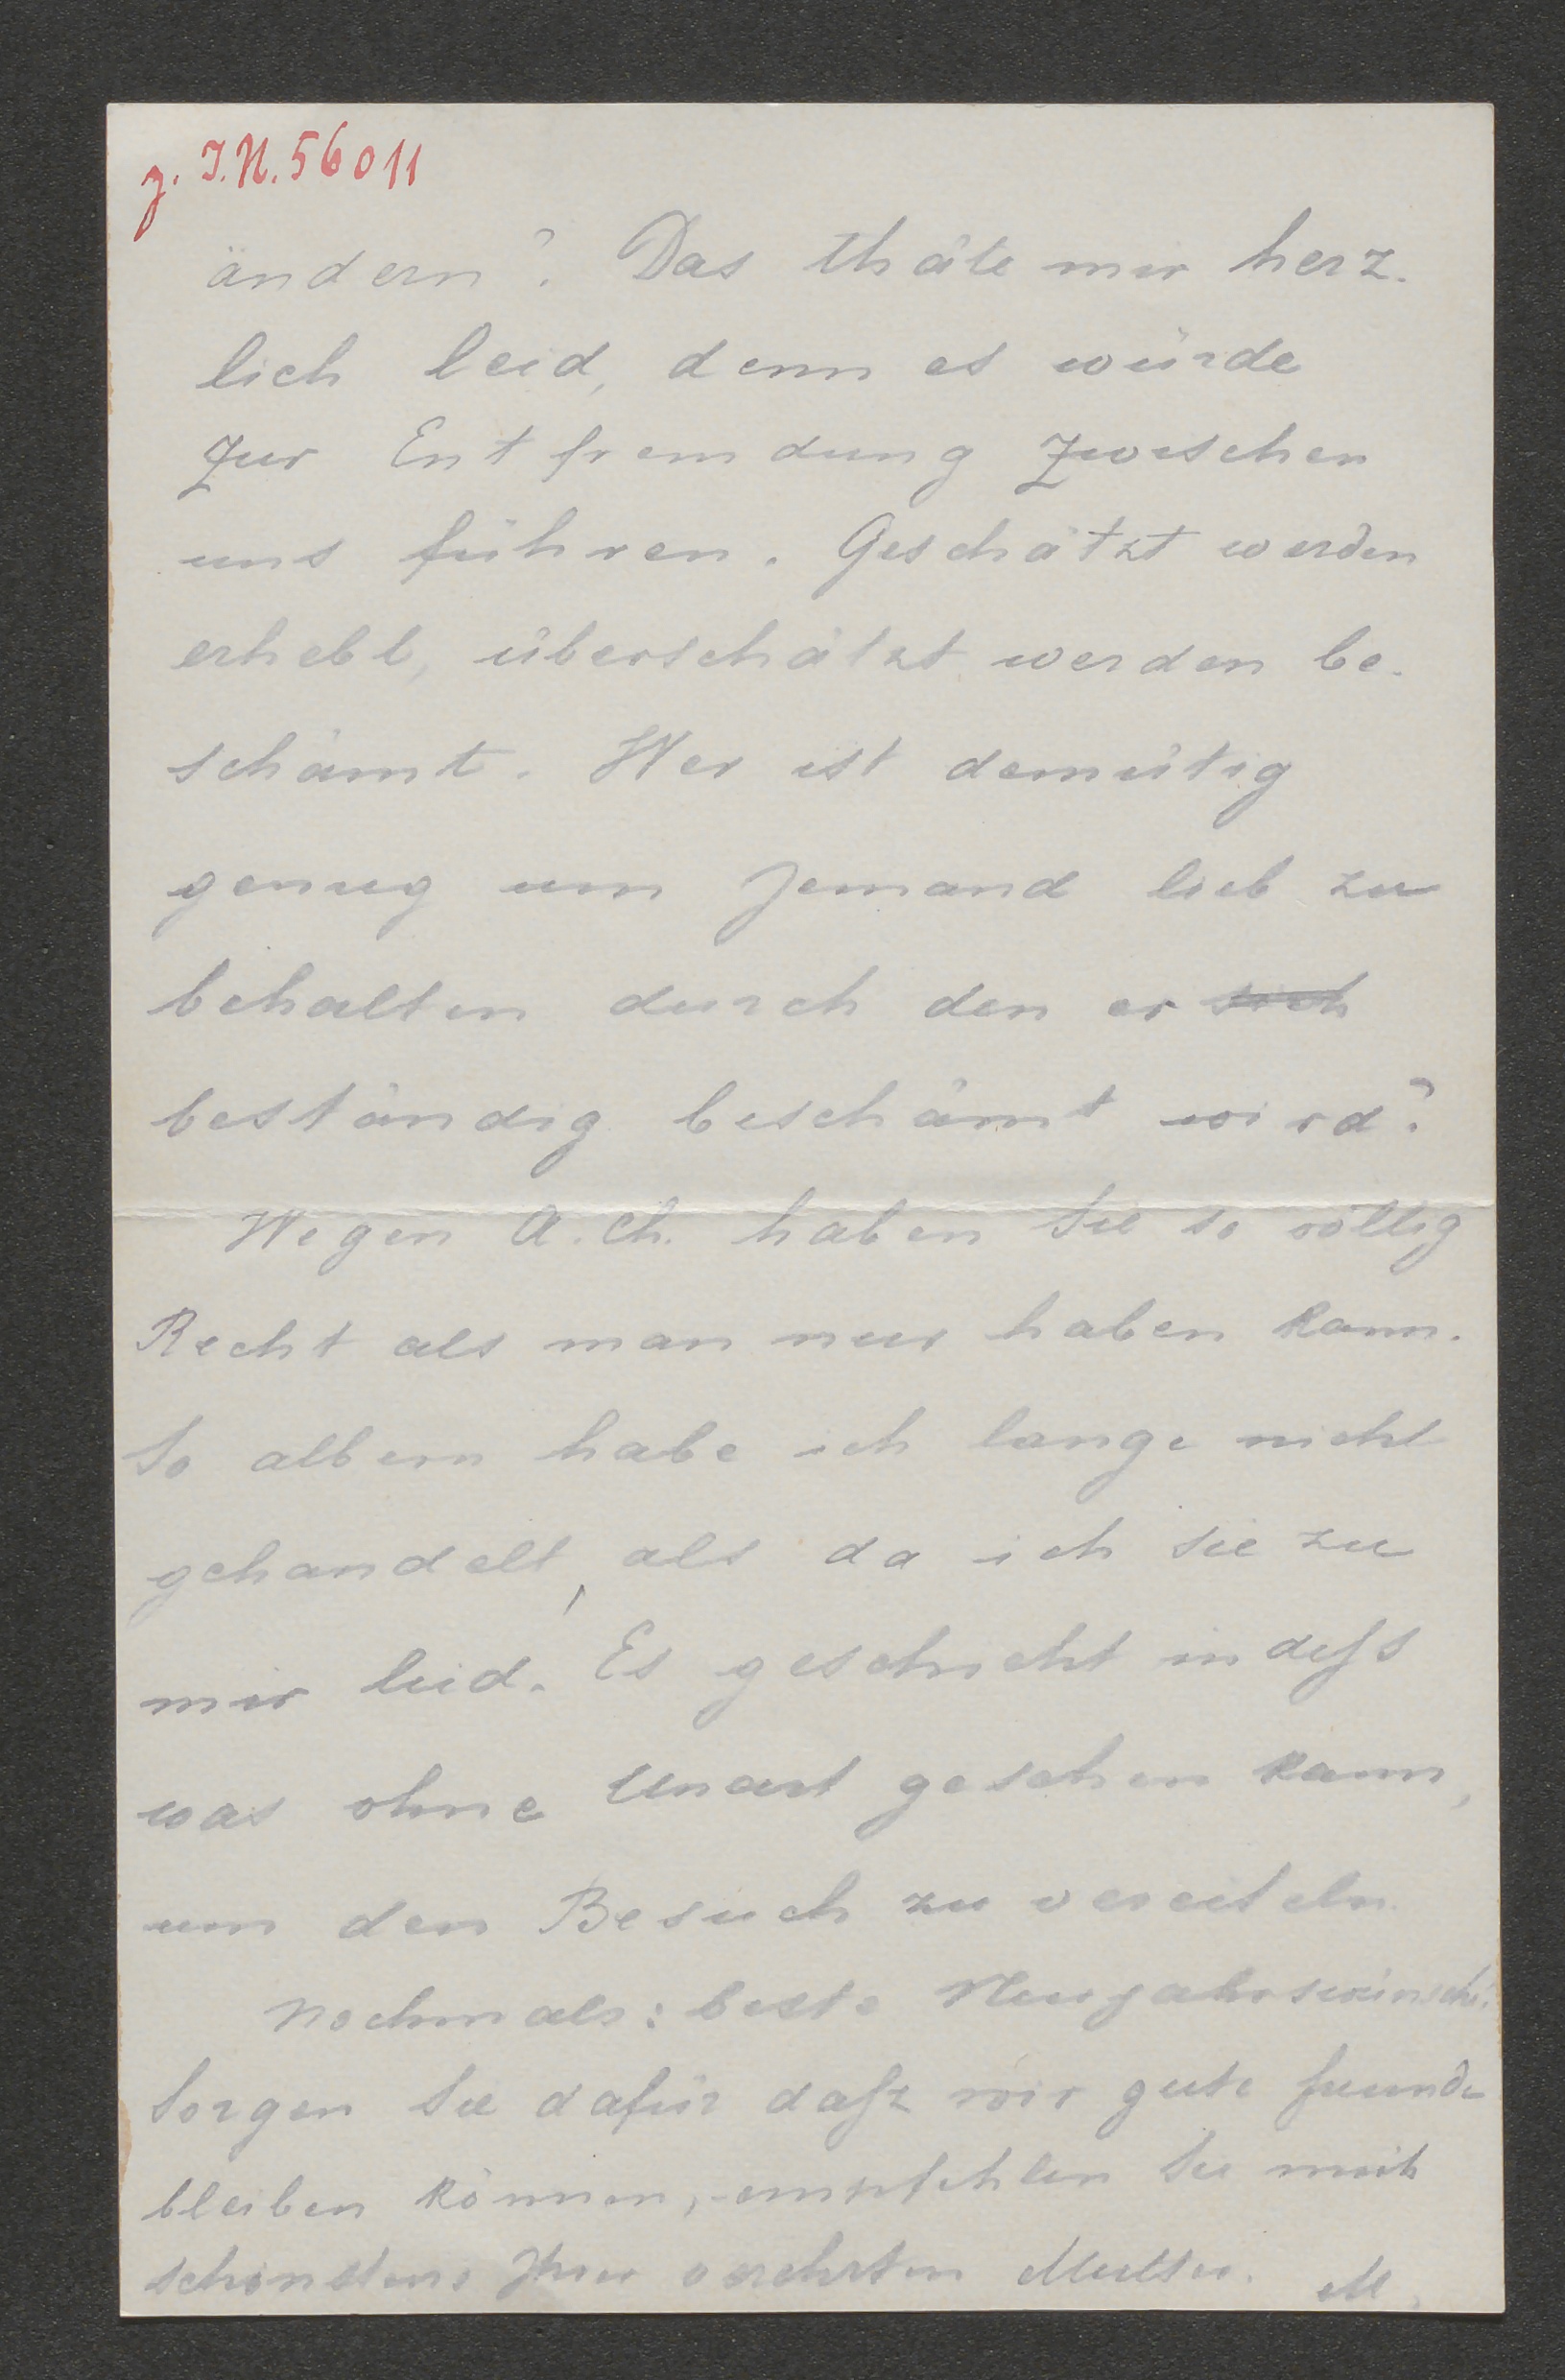 z. I.N. 56011
ändern? Das thäte mir herz-
lich leid, denn es würde
zur Entfremdung zwischen
uns führen. Geschätzt werden
erhebt, überschätzt werden be-
schämt. Wer ist demütig
genug um Jemand lieb zu
behalten durch den er sich
beständig beschämt wird?
Wegen A. Ch. haben Sie so völlig
Recht als man nur haben kann.
So albern habe ich lange nicht
gehandelt, als da ich sie zu
mir lud. Es geschieht indess
was ohne Unart geschen kann,
um den Besuch zu vereiteln.
Nochmals: beste Neujahrswünsche.
Sorgen Sie dafür dasz wir gute Freunde
bleiben können, empfehlen Sie mich
schönstens Ihrer verehrten Mutter. M.